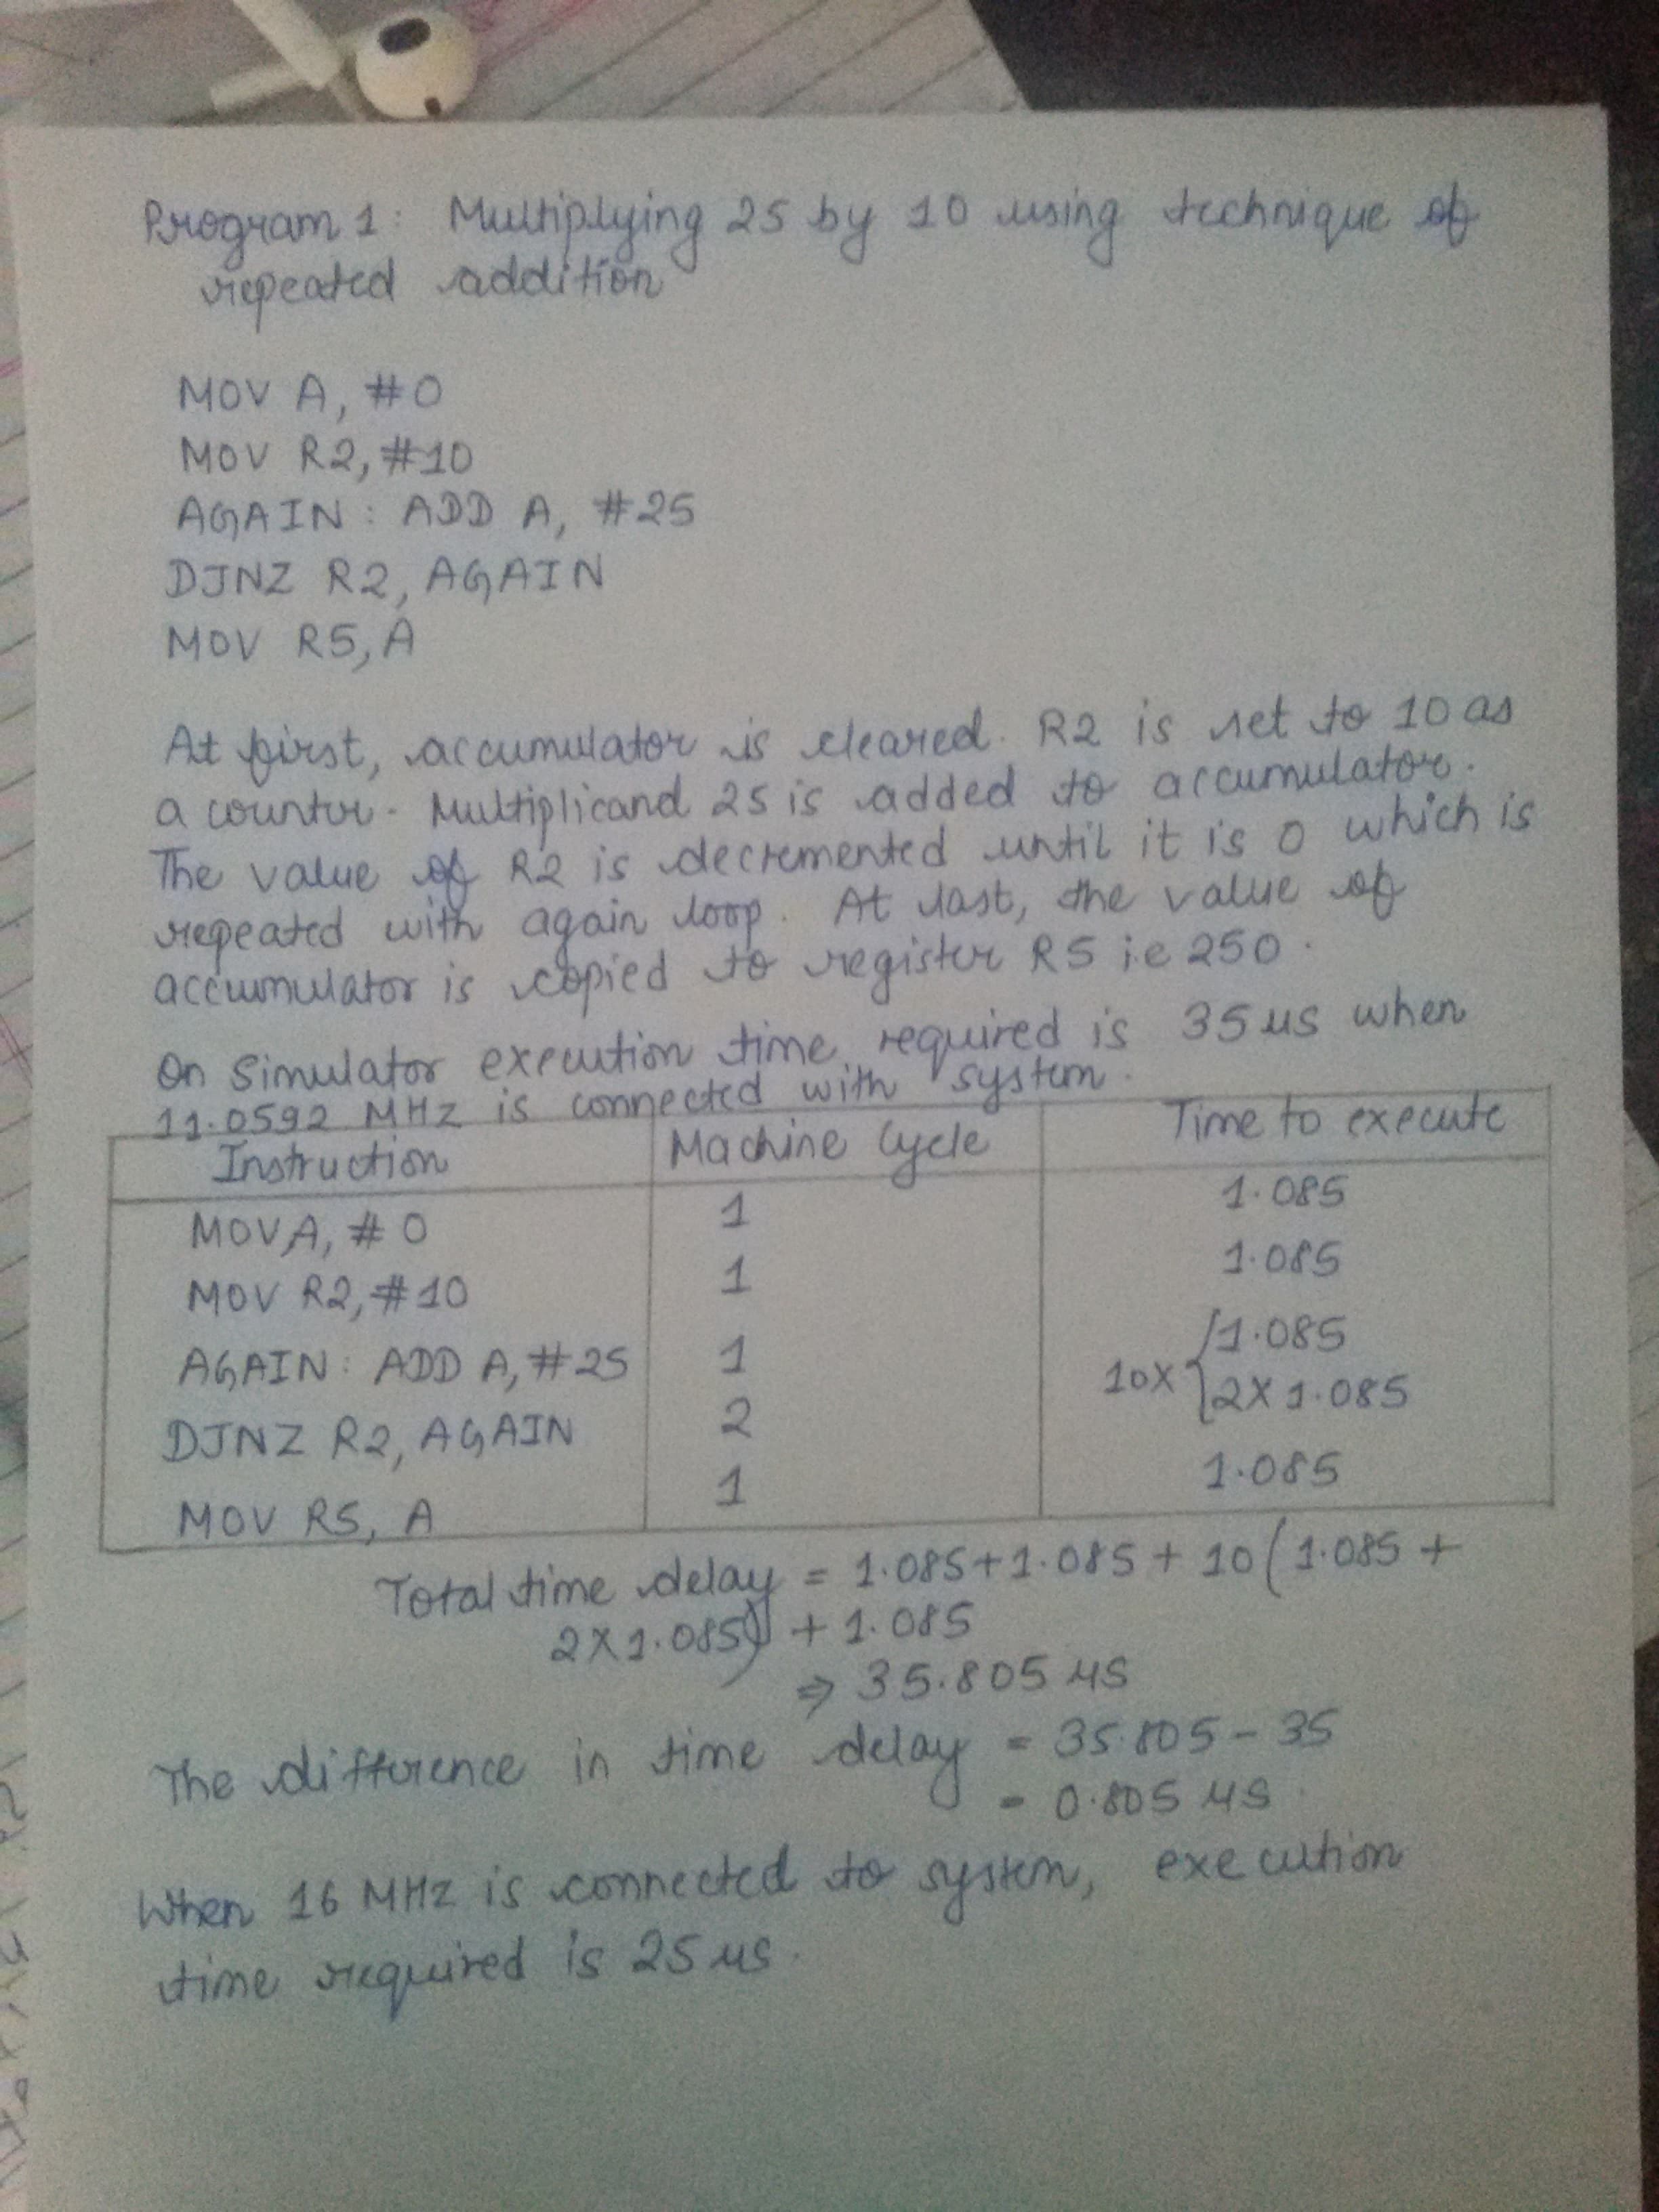 Program 1: Multiplying 25 by 10 using technique of
repeated addition
MOV A, #0
MOV R2, #10
AGAIN: ADD A, #25
DJNZ R2, AGAIN
MOV R5, A
At first, accumulator is cleared. R2 is set to 10 as
a counter. Multiplicand 25 is added to accumulator.
The value of R2 is decremented until it is 0 which is
repeated with again loop. At last, the value of
accumulator is copied to register R5 i.e 250.
On Simulator execution time required is 35 μs when
11.0592 MHz is connected with system.
Instruction Machine Cycle Time to execute
MOV A, #0 1 1.085
MOV R2, #10 1 1.085
AGAIN: ADD A, #25 1 10X { 1.085
DJNZ R2, AGAIN 2 2X1.085
MOV R5, A 1 1.085
Total time delay = 1.085+1.085 + 10(1.085 +
2X1.085) + 1.085
⇒ 35.805 μs
The difference in time delay = 35.805 - 35
= 0.805 μs.
When 16 MHz is connected to system, execution
time required is 25 μs.